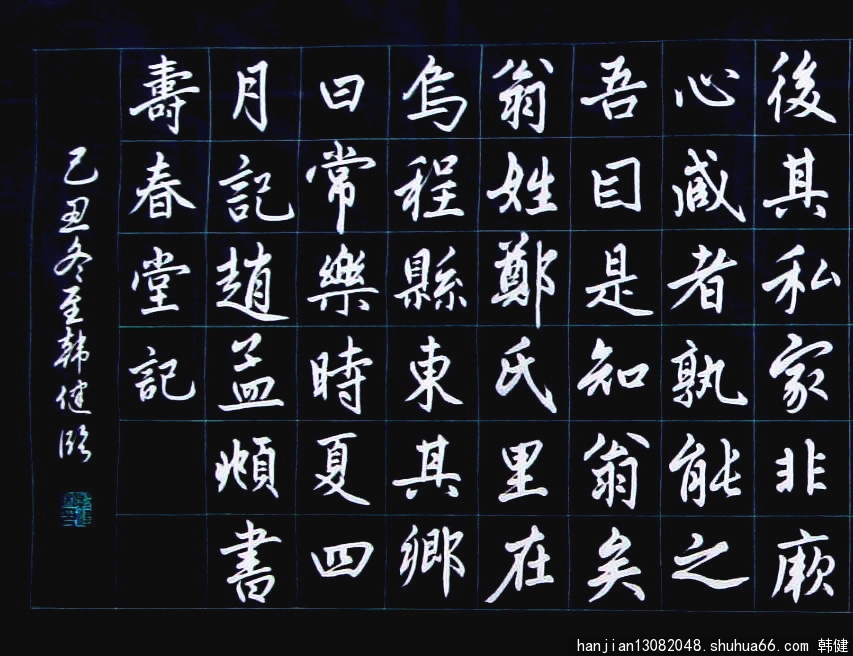 後其私家非厥
心臧者孰能之
吾目是知翁矣
翁姓鄭氏里在
烏程縣東其鄉
曰常樂時夏四
月記趙孟頫書
壽春堂記
己丑冬至韩健临
hanjian13082048.shuhua66.com 韩健